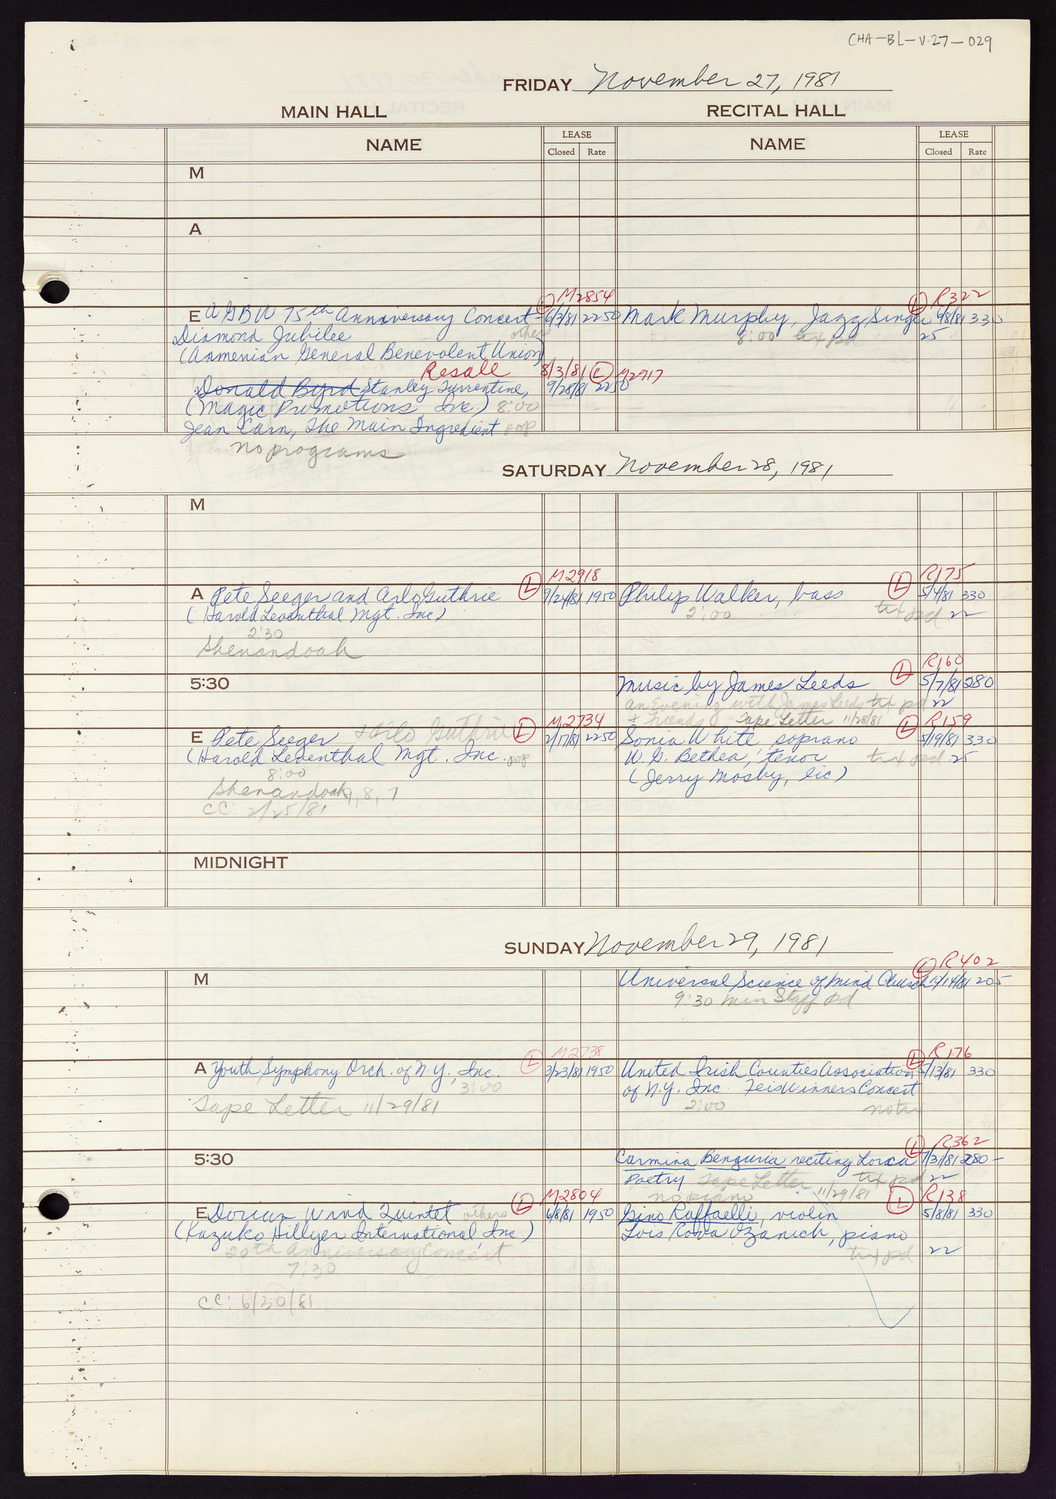 CHA-BL-V.27-029
FRIDAY November 27, 1981
MAIN HALL
RECITAL HALL
NAME
LEASE
Closed Rate
NAME
LEASE
Closed Rate
M
A
M2854
R322
E AGBU 75th Anniversary Concert- L 6/3/81 2250
Mark Murphy, Jazz Singer L 9/8/81 330
Diamond Jubilee others
8:00 tix pd 25
(Armenian General Benevolent Union)
Resale 8/3/81 L M2917
Donald Byrd Stanley Turrentine, 9/28/81 2250
(Magic Promotions, Inc.) 8:00
Jean Carn, The Main Ingredient pop
no programs
SATURDAY November 28, 1981
M
M2918
R175
A Pete Seeger and Arlo Guthrie L 9/24/81 1950
Philip Walker, bass L 5/4/81 330
(Harold Leventhal Mgt. Inc)
2:00 tix pd 22
2:30
Shenandoah
R160
5:30
Music by James Leeds L 5/7/81 280
An Evening with James Leeds tix pd 22
& Friends Tape Letter 11/28/81
M2734
R159
E Pete Seeger & Arlo Guthrie L 2/17/81 2250
Sonia White, soprano L 5/19/81 330
(Harold Leventhal Mgt. Inc. pop
W. G. Bethea, tenor tix pd 25
8:00
(Jerry Mosby, lic)
Shenandoah 9, 8, 7
CC: 2/25/81
MIDNIGHT
SUNDAY November 29, 1981
R402
M
Universal Science of Mind Church L 205
9:30 Min Staff pd
M2738
R176
A Youth Symphony Orch. of N.Y., Inc. L 3/23/81 1950
United Irish Counties Association L 5/13/81 330
3:00
of N.Y. Inc Feis Winners Concert
Tape Letter 11/29/81
2:00 no tix
R362
5:30
Carmina Benguria reciting Lorca L 7/31/81 280-
Poetry Tape Letter tix pd 22
no piano 11/29/81
M2804
R138
E Dorian Wind Quintet others L 6/8/81 1950
Gino Raffaelli, violin L 5/8/81 330
(Kazuko Hillyer International, Inc.)
Lois Rova Ozanich, piano
20th Anniversary Concert
tix pd 22
7:30
CC: 6/30/81